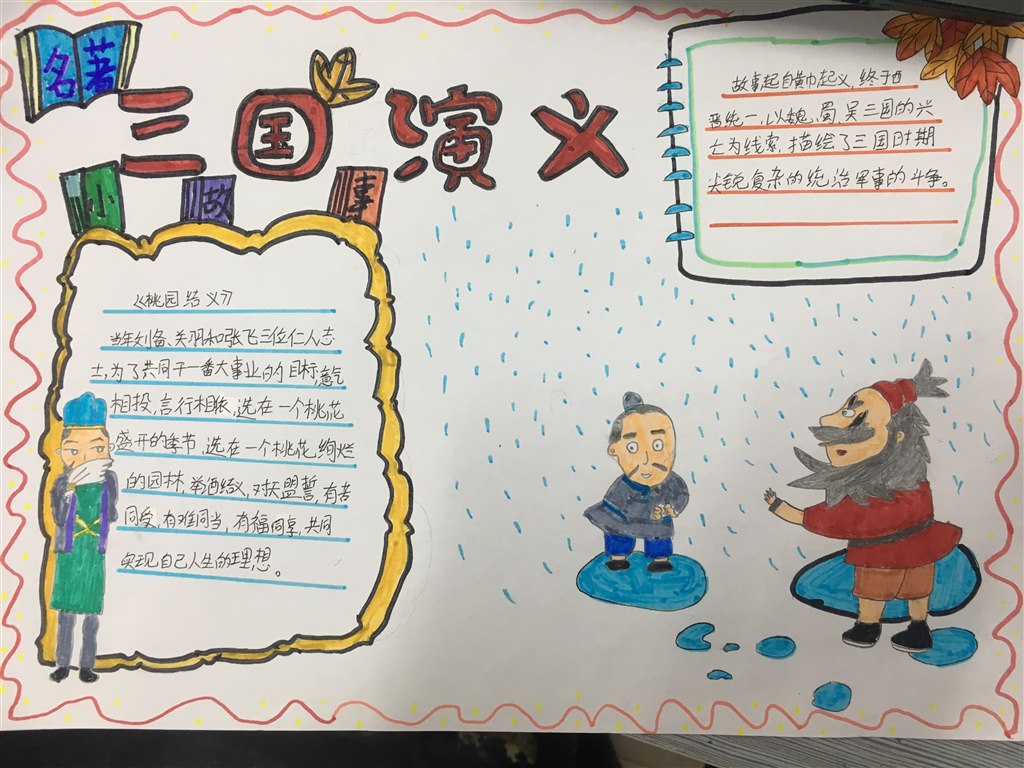 名著
三国演义
小故事
故事起自黄巾起义,终于西
晋统一,以魏、蜀、吴三国的兴
亡为线索,描绘了三国时期
尖锐复杂的统治军事的斗争。
《桃园结义》
当年刘备、关羽和张飞三位仁人志
士,为了共同干一番大事业的目标,意气
相投,言行相依,选在一个桃花
盛开的季节,选在一个桃花绚烂
的园林,举酒结义,对天盟誓,有苦
同受,有难同当,有福同享,共同
实现自己人生的理想。